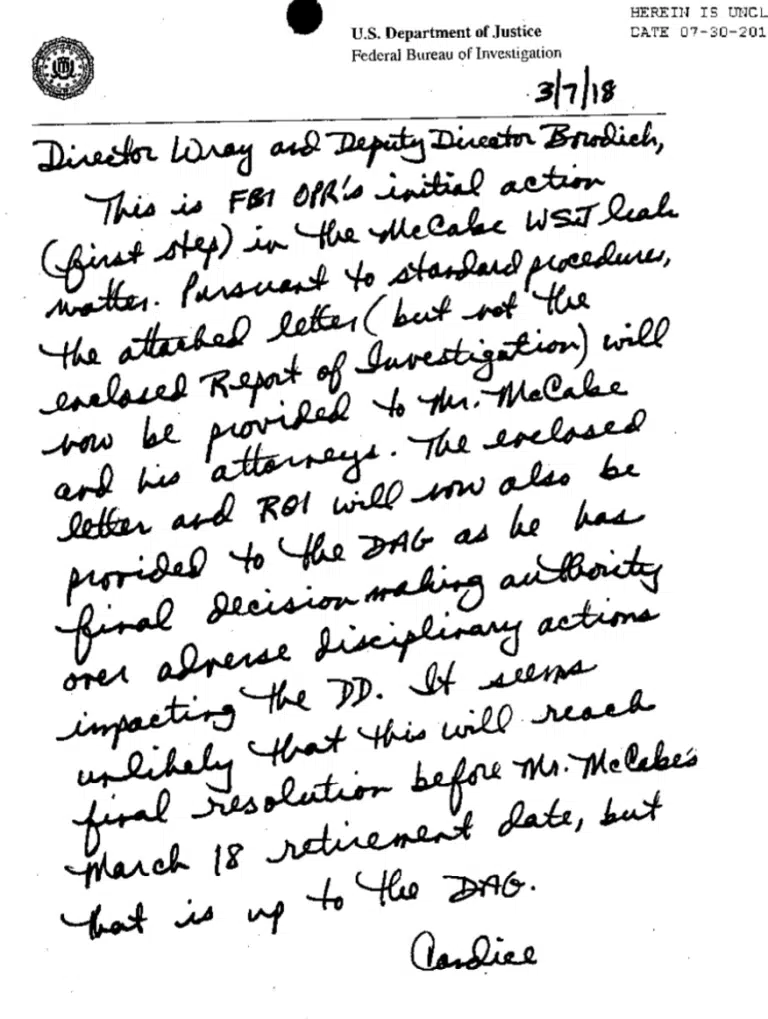 HEREIN IS UNCL
DATE 07-30-201
U.S. Department of Justice
Federal Bureau of Investigation
3/7/18
Director Wray and Deputy Director Bowdich,
This is FBI OPR's initial action
(first step) in the McCabe WSJ leak
matter. Pursuant to standard procedures,
the attached letter (but not the
enclosed Report of Investigation) will
now be provided to Mr. McCabe
and his attorneys. The enclosed
letter and ROI will now also be
provided to the DAG as he has
final decision making authority
over adverse disciplinary actions
impacting the DD. It seems
unlikely that this will reach
final resolution before Mr. McCabe's
March 18 retirement date, but
that is up to the DAG.
Candice